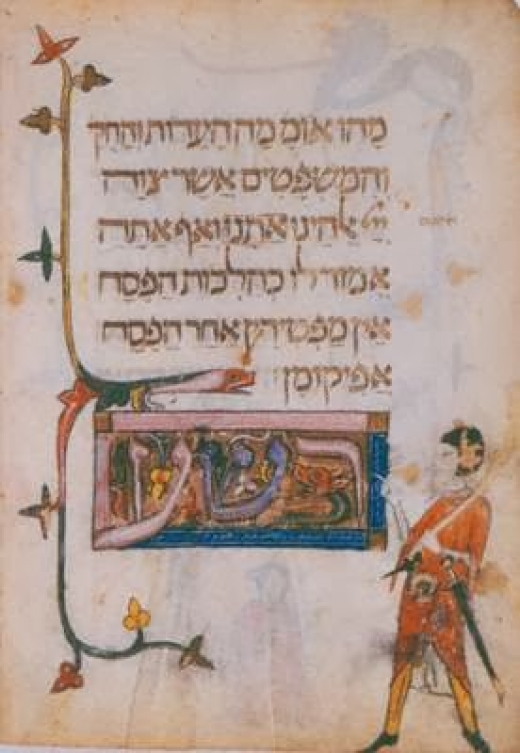 מהו אומ מה העדות והחק
והמשפטים אשר צוה
ייי אלהינו אתנו ואף אתה
אמור לו כהלכות הפסח
אין מפטירין אחר הפסח
אפיקומן
רשע